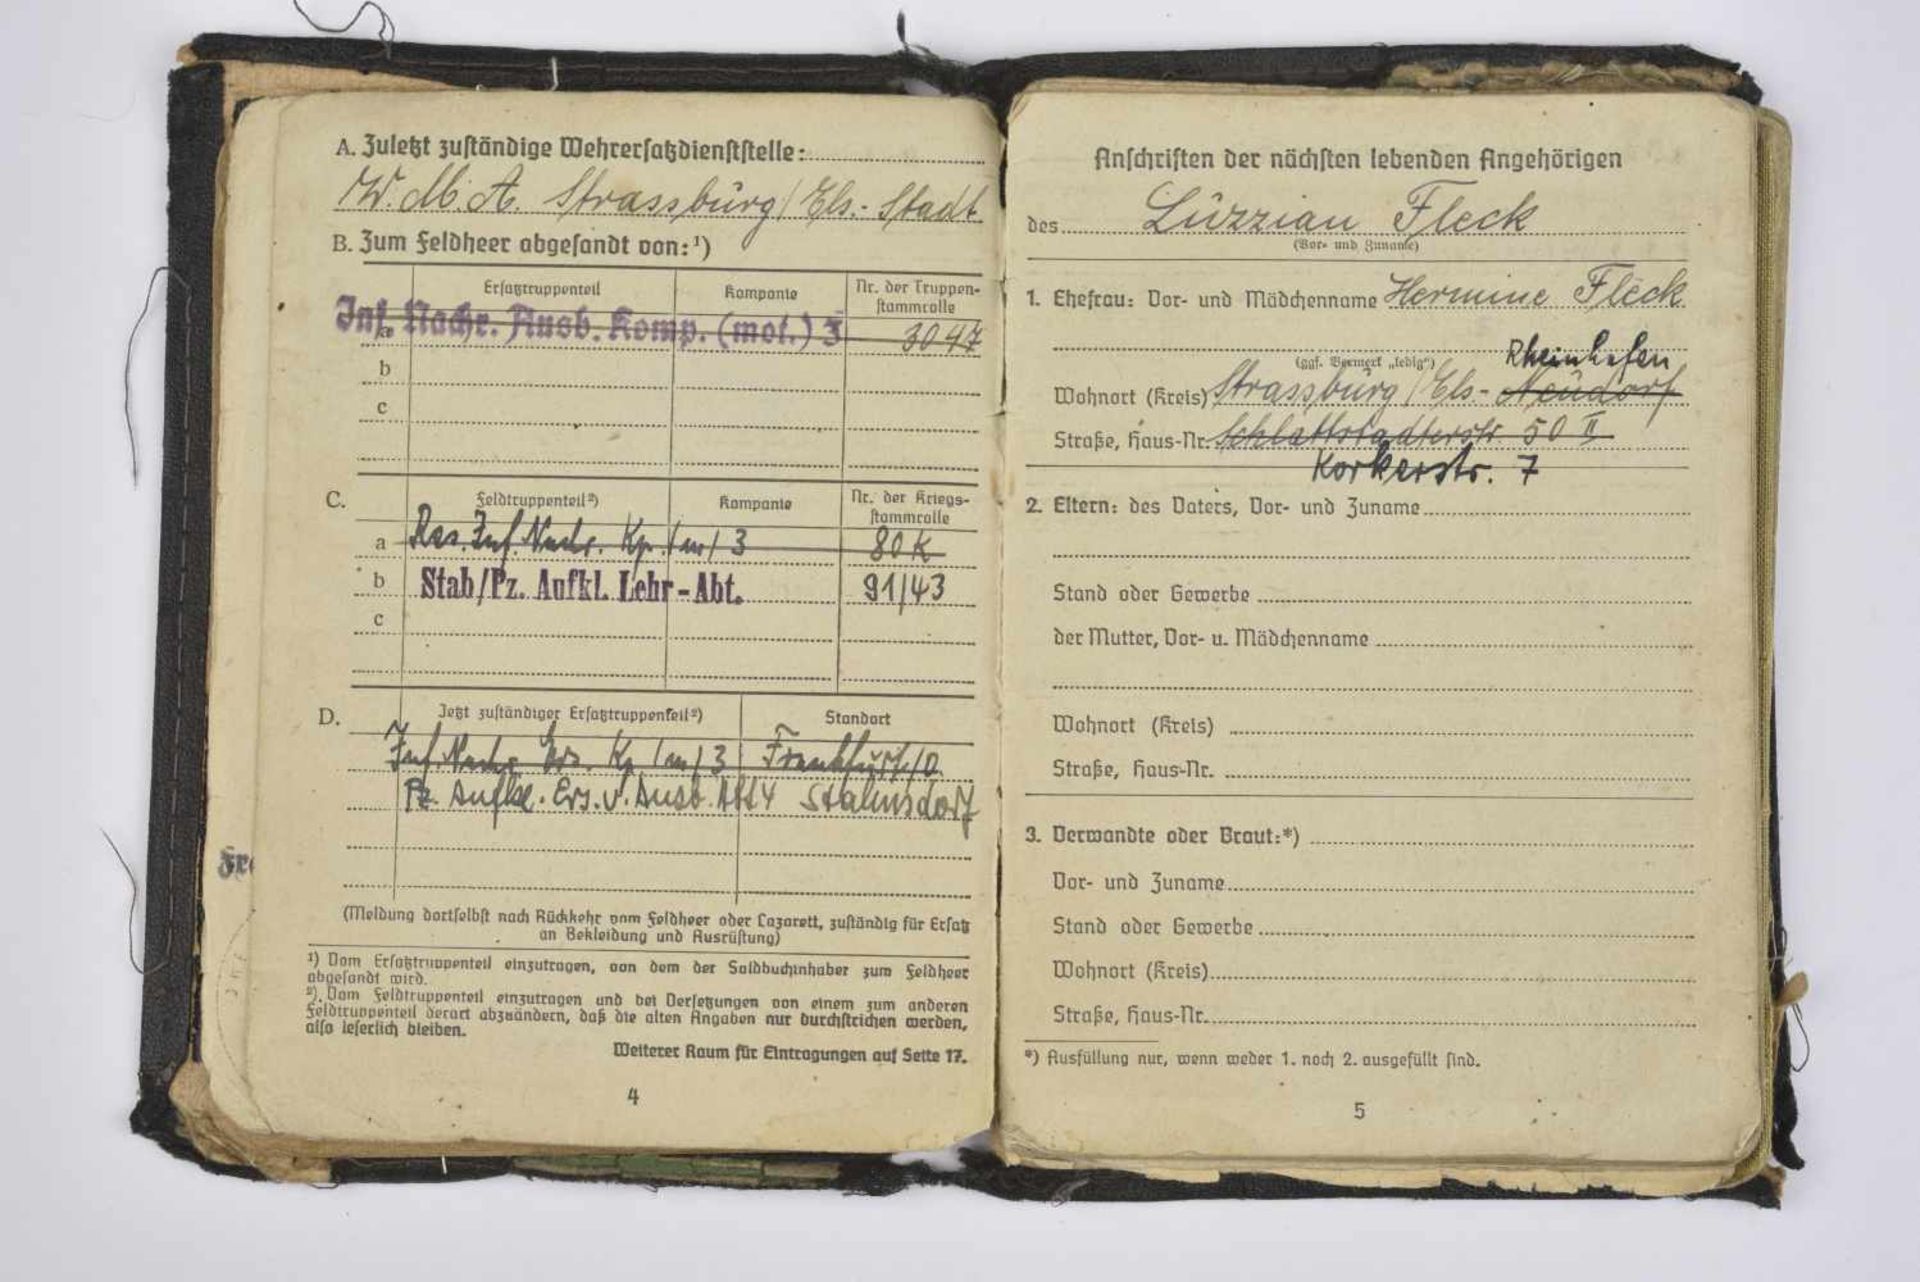 A. Zuletzt zuständige Wehrersatzdienststelle:
W. M. A. Strassburg / Els.- Stadt
B. Zum Feldheer abgesandt von: ¹)
Ersatztruppenteil Kompanie Nr. der Truppen-
stammrolle
Inf. Nachr. Ausb. Komp. (mot.) 3 3047
a
b
c
C. Feldtruppenteil ²) Kompanie Nr. der Kriegs-
stammrolle
a Res. Inf. Nachr. Kp. (m) 3 80K
b Stab/Pz. Aufkl. Lehr-Abt. 91/43
c
D. Jetzt zuständiger Ersatztruppenteil ²) Standort
Inf. Nachr. Ers. Kp (m) 3 Frankfurt/O.
Pz. Aufkl. Ers. u. Ausb. Abt 4 Stahnsdorf
(Meldung dortselbst nach Rückkehr vom Feldheer oder Lazarett, zuständig für Ersatz
an Bekleidung und Ausrüstung)
¹) Vom Ersatztruppenteil einzutragen, von dem der Soldbuchinhaber zum Feldheer
abgesandt wird.
²) Vom Feldtruppenteil einzutragen und bei Versetzungen von einem zum anderen
Feldtruppenteil derart abzuändern, daß die alten Angaben nur durchstrichen werden,
also leserlich bleiben.
Weiterer Raum für Eintragungen auf Seite 17.
4
Anschriften der nächsten lebenden Angehörigen
des Luzzian Fleck
(Vor- und Zuname)
1. Ehefrau: Vor- und Mädchenname Hermine Fleck
(ggf. Vermerk „ledig")
Rheinhafen
Wohnort (Kreis) Strassburg / Els.- Neudorf
Straße, Haus-Nr. Schlettstadterstr. 50 II
Korkerstr. 7
2. Eltern: des Vaters, Vor- und Zuname
Stand oder Gewerbe
der Mutter, Vor- u. Mädchenname
Wohnort (Kreis)
Straße, Haus-Nr.
3. Verwandte oder Braut:*)
Vor- und Zuname
Stand oder Gewerbe
Wohnort (Kreis)
Straße, Haus-Nr.
*) Ausfüllung nur, wenn weder 1. noch 2. ausgefüllt sind.
5